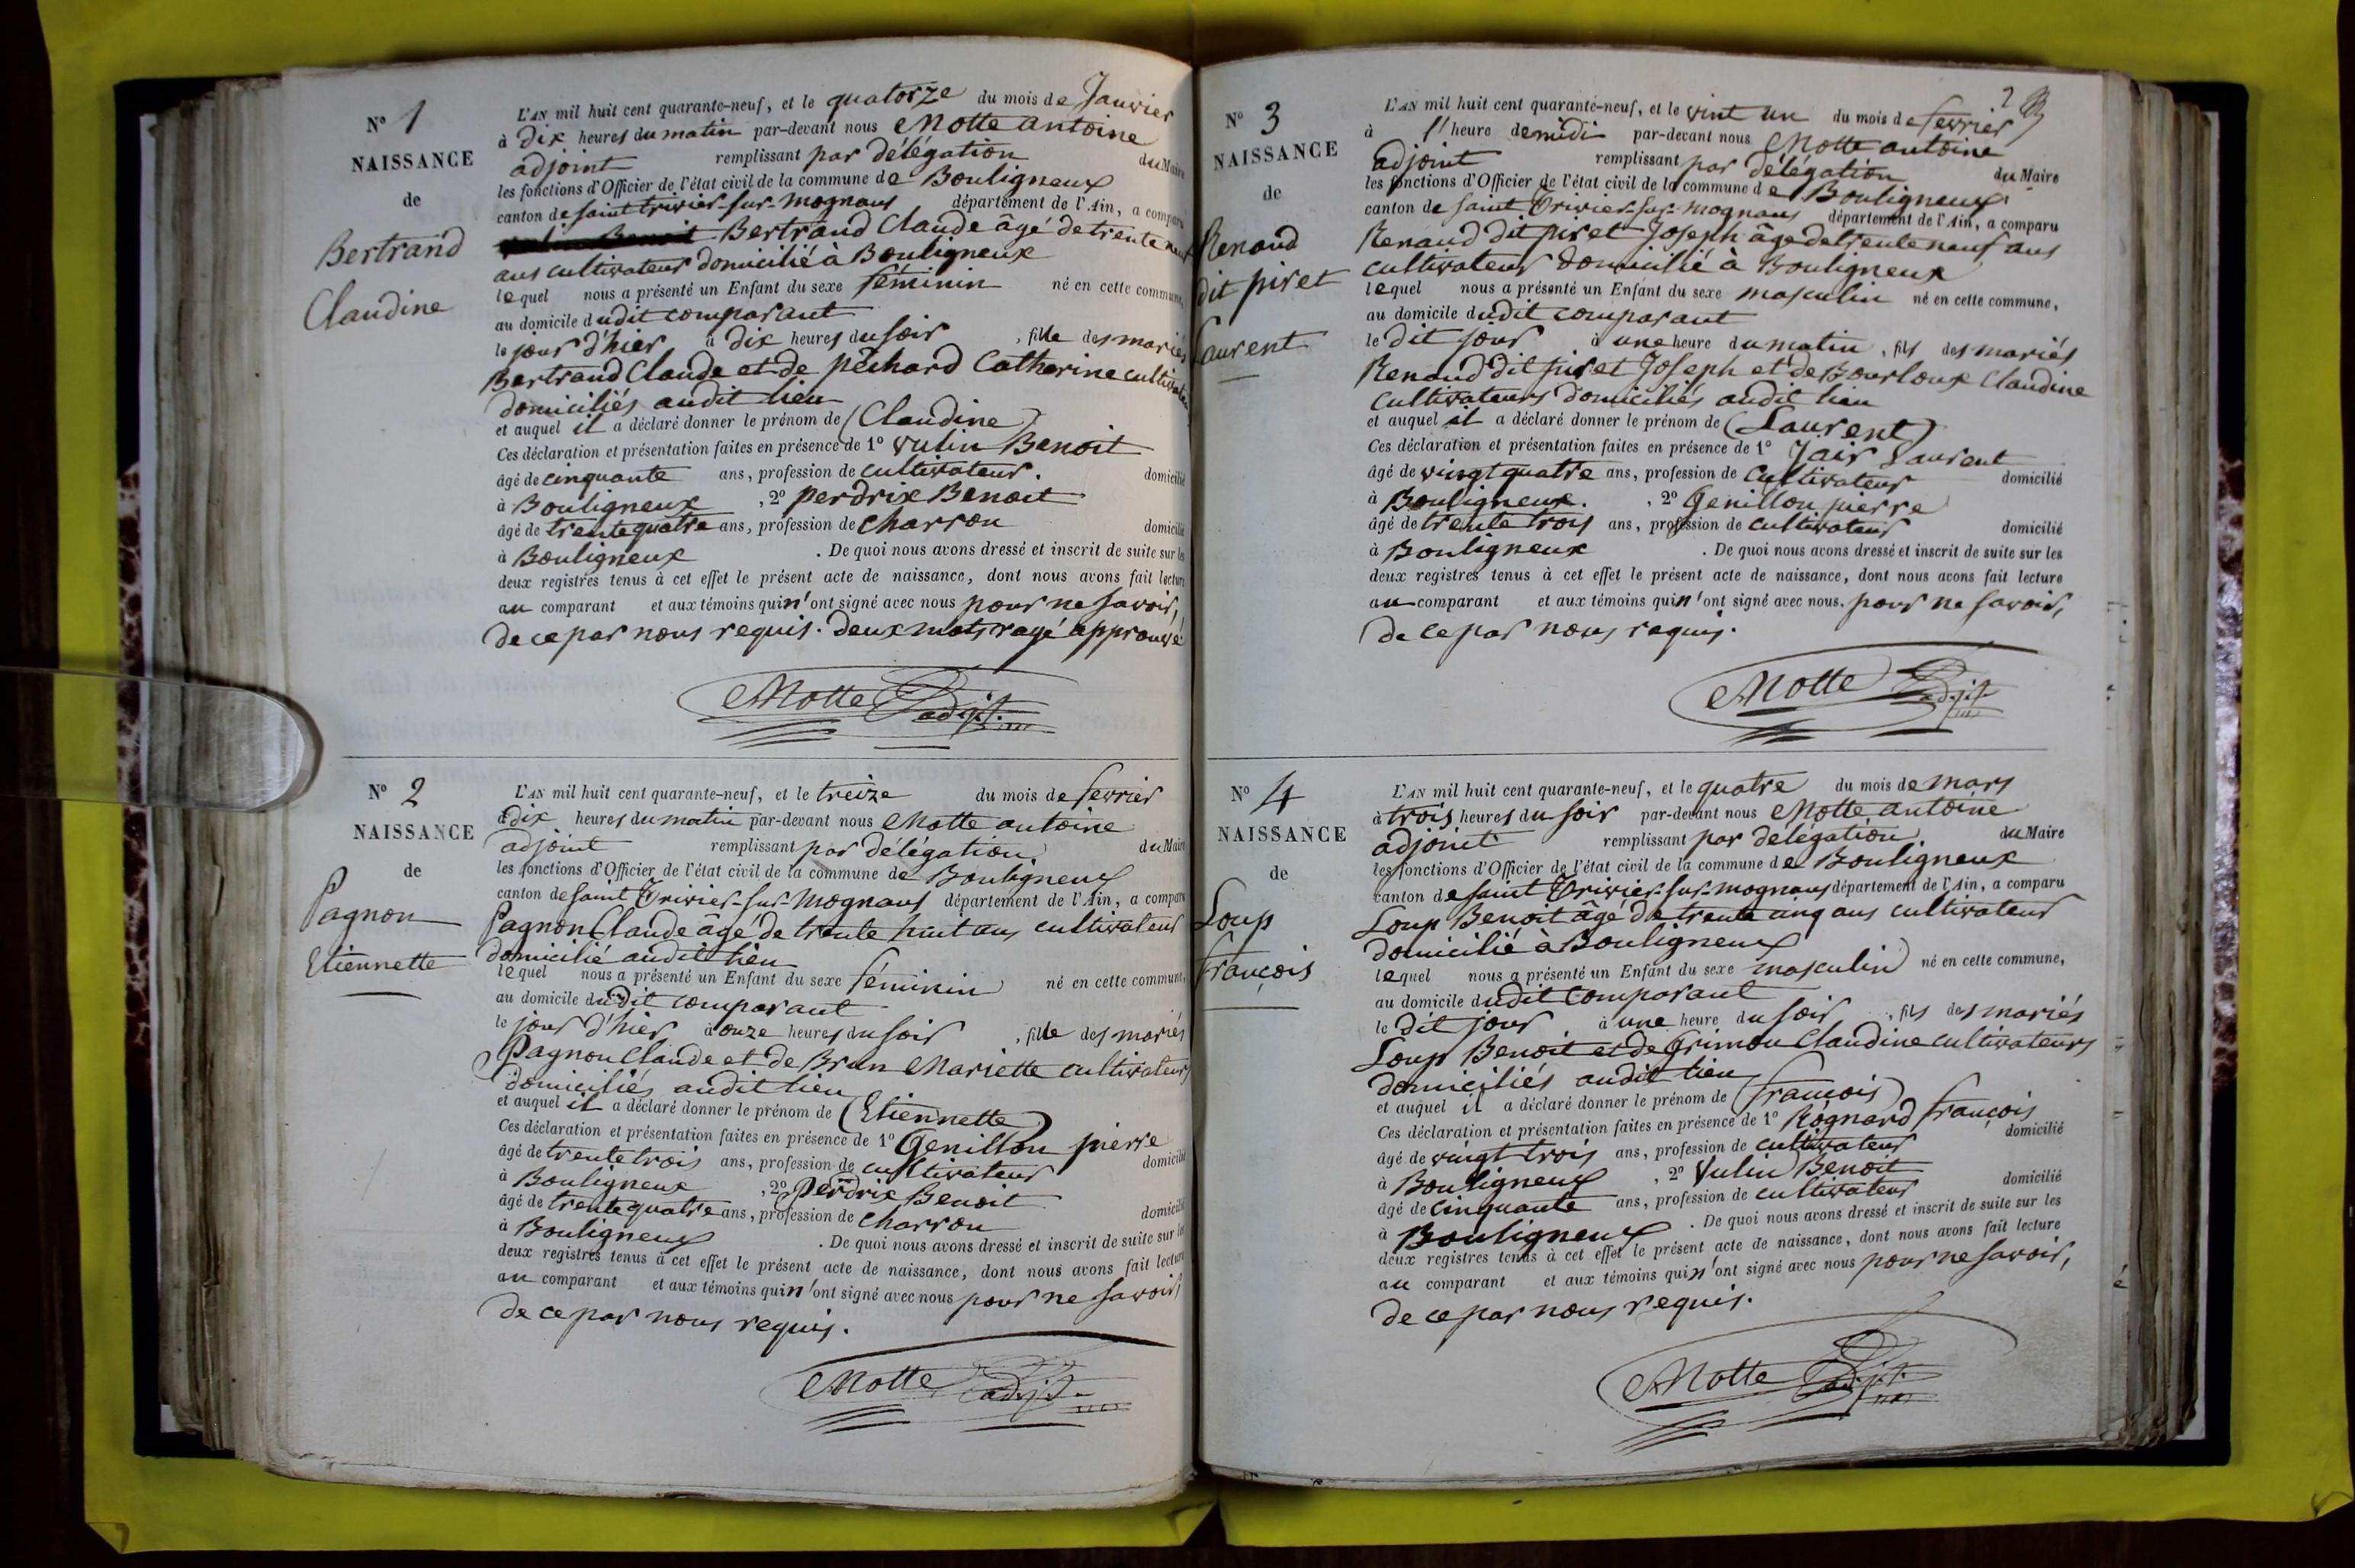 N° 1
NAISSANCE
de
Bertrand
Claudine
L'AN mil huit cent quarante-neuf, et le quatorze du mois de Janvier
à dix heures du matin par-devant nous Motte antoine
adjoint remplissant par délégation du Maire
les fonctions d'Officier de l'état civil de la commune de Bouligneux
canton de saint trivier-sur-mognans département de l'Ain, a comparu
Bertrand Claude âgé de trente neuf
ans cultivateur domicilié à Bouligneux
lequel nous a présenté un Enfant du sexe féminin né en cette commune,
au domicile dudit comparant
le jour d'hier à dix heures du soir, fille des mariés
Bertrand Claude et de péchard Catherine cultivateurs
domiciliés audit lieu
et auquel il a déclaré donner le prénom de (Claudine)
Ces déclaration et présentation faites en présence de 1° vulin Benoit
âgé de cinquante ans, profession de cultivateur. domicilié
à Bouligneux, 2° perdrix Benoit
âgé de trente quatre ans, profession de charron domicilié
à Bouligneux. De quoi nous avons dressé et inscrit de suite sur les
deux registres tenus à cet effet le présent acte de naissance, dont nous avons fait lecture
au comparant et aux témoins qui n'ont signé avec nous pour ne savoir,
de ce par nous requis. deux mots rayé approuvé
Motte adjt.
N° 2
NAISSANCE
de
Pagnon
Etiennette
L'AN mil huit cent quarante-neuf, et le treize du mois de fevrier
à dix heures du matin par-devant nous Motte antoine
adjoint remplissant par délégation du Maire
les fonctions d'Officier de l'état civil de la commune de Bouligneux
canton de saint Trivier-sur-Mognans département de l'Ain, a comparu
Pagnon Claude âgé de trente huit ans cultivateur
domicilié audit lieu
lequel nous a présenté un Enfant du sexe féminin né en cette commune,
au domicile dudit comparant
le jour d'hier à onze heures du soir, fille des mariés
Pagnon Claude et de Brun Mariette cultivateurs
domiciliés audit lieu
et auquel il a déclaré donner le prénom de (Etiennette)
Ces déclaration et présentation faites en présence de 1° Genillon pierre
âgé de trente trois ans, profession de cultivateur domicilié
à Bouligneux, 2° Perdrix Benoit
âgé de trente quatre ans, profession de charron domicilié
à Bouligneux. De quoi nous avons dressé et inscrit de suite sur les
deux registres tenus à cet effet le présent acte de naissance, dont nous avons fait lecture
au comparant et aux témoins qui n'ont signé avec nous pour ne savoir,
de ce par nous requis.
Motte adjt.
2
N° 3
NAISSANCE
de
Renaud
dit piret
Laurent
L'AN mil huit cent quarante-neuf, et le vint un du mois de fevrier
à l'heure de midi par-devant nous Motte antoine
adjoint remplissant par délégation du Maire
les fonctions d'Officier de l'état civil de la commune de Bouligneux
canton de saint Trivier-sur-mognans département de l'Ain, a comparu
Renaud dit piret Joseph âgé de trente neuf ans
cultivateur domicilié à Bouligneux
lequel nous a présenté un Enfant du sexe masculin né en cette commune,
au domicile dudit comparant
le dit jour à une heure du matin, fils des mariés
Renaud dit piret Joseph et de Bourloux Claudine
cultivateurs domiciliés audit lieu
et auquel il a déclaré donner le prénom de (Laurent)
Ces déclaration et présentation faites en présence de 1° Jair Laurent
âgé de vingt quatre ans, profession de cultivateur domicilié
à Bouligneux., 2° Genillon pierre
âgé de trente trois ans, profession de cultivateur domicilié
à Bouligneux. De quoi nous avons dressé et inscrit de suite sur les
deux registres tenus à cet effet le présent acte de naissance, dont nous avons fait lecture
au comparant et aux témoins qui n'ont signé avec nous. pour ne savoir,
de ce par nous requis.
Motte adjt
N° 4
NAISSANCE
de
Loup
françois
L'AN mil huit cent quarante-neuf, et le quatre du mois de mars
à trois heures du soir par-devant nous Motte antoine
adjoint remplissant par délégation du Maire
les fonctions d'Officier de l'état civil de la commune de Bouligneux
canton de saint Trivier-sur-mognans département de l'Ain, a comparu
Loup Benoit âgé de trente cinq ans cultivateur
domicilié à Bouligneux
lequel nous a présenté un Enfant du sexe masculin né en cette commune,
au domicile dudit comparant
le dit jour à une heure du soir, fils des mariés
Loup Benoit et de Grimon Claudine cultivateurs
domiciliés audit lieu
et auquel il a déclaré donner le prénom de (françois)
Ces déclaration et présentation faites en présence de 1° Rognard françois
âgé de vingt trois ans, profession de cultivateur domicilié
à Bouligneux, 2° Vulin Benoit
âgé de cinquante ans, profession de cultivateur domicilié
à Bouligneux. De quoi nous avons dressé et inscrit de suite sur les
deux registres tenus à cet effet le présent acte de naissance, dont nous avons fait lecture
au comparant et aux témoins qui n'ont signé avec nous pour ne savoir,
de ce par nous requis.
Motte adjt.